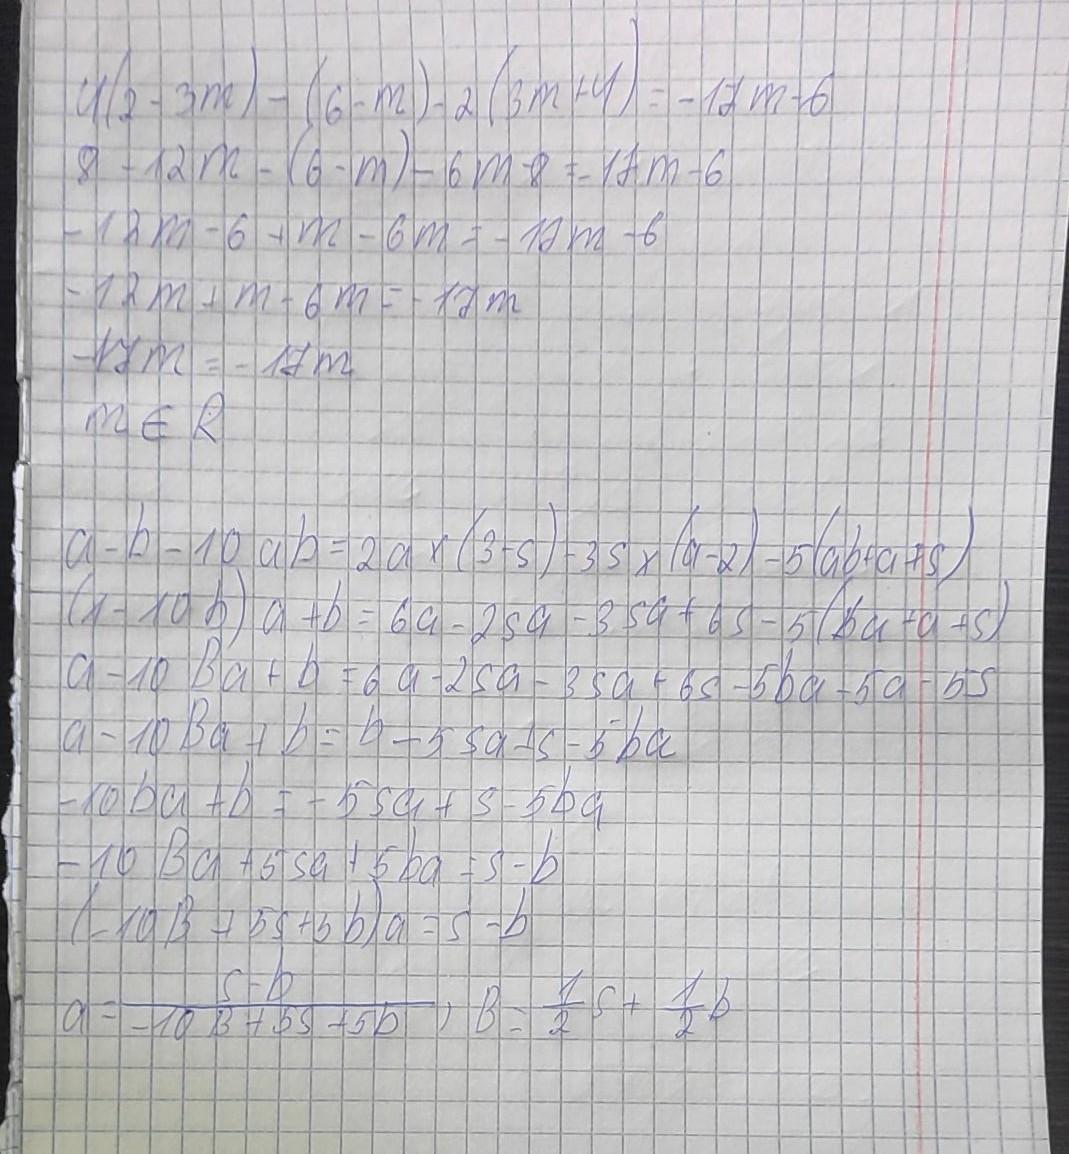 4(2-3m)-(6-m)-2(3m+4)=-17m-6
8-12m-(6-m)-6m-8=-17m-6
-12m-6+m-6m=-17m-6
-12m+m-6m=-17m
-17m=-17m
m∈R
a-b-10ab=2a×(3-s)-3s×(a-2)-5(ab+a+s)
(1-10b)a+b=6a-2sa-3sa+6s-5(ba+a+s)
a-10Ba+b=6a-2sa-3sa+6s-5ba-5a-5s
a-10Ba+b=b-5sa+s-5ba
-10ba+b=-5sa+s-5ba
-10Ba+5sa+5ba=s-b
(-10B+5s+5b)a=s-b
a=\frac{s-b}{-10B+5s+5b}, B=\frac{1}{2}s+\frac{1}{2}b